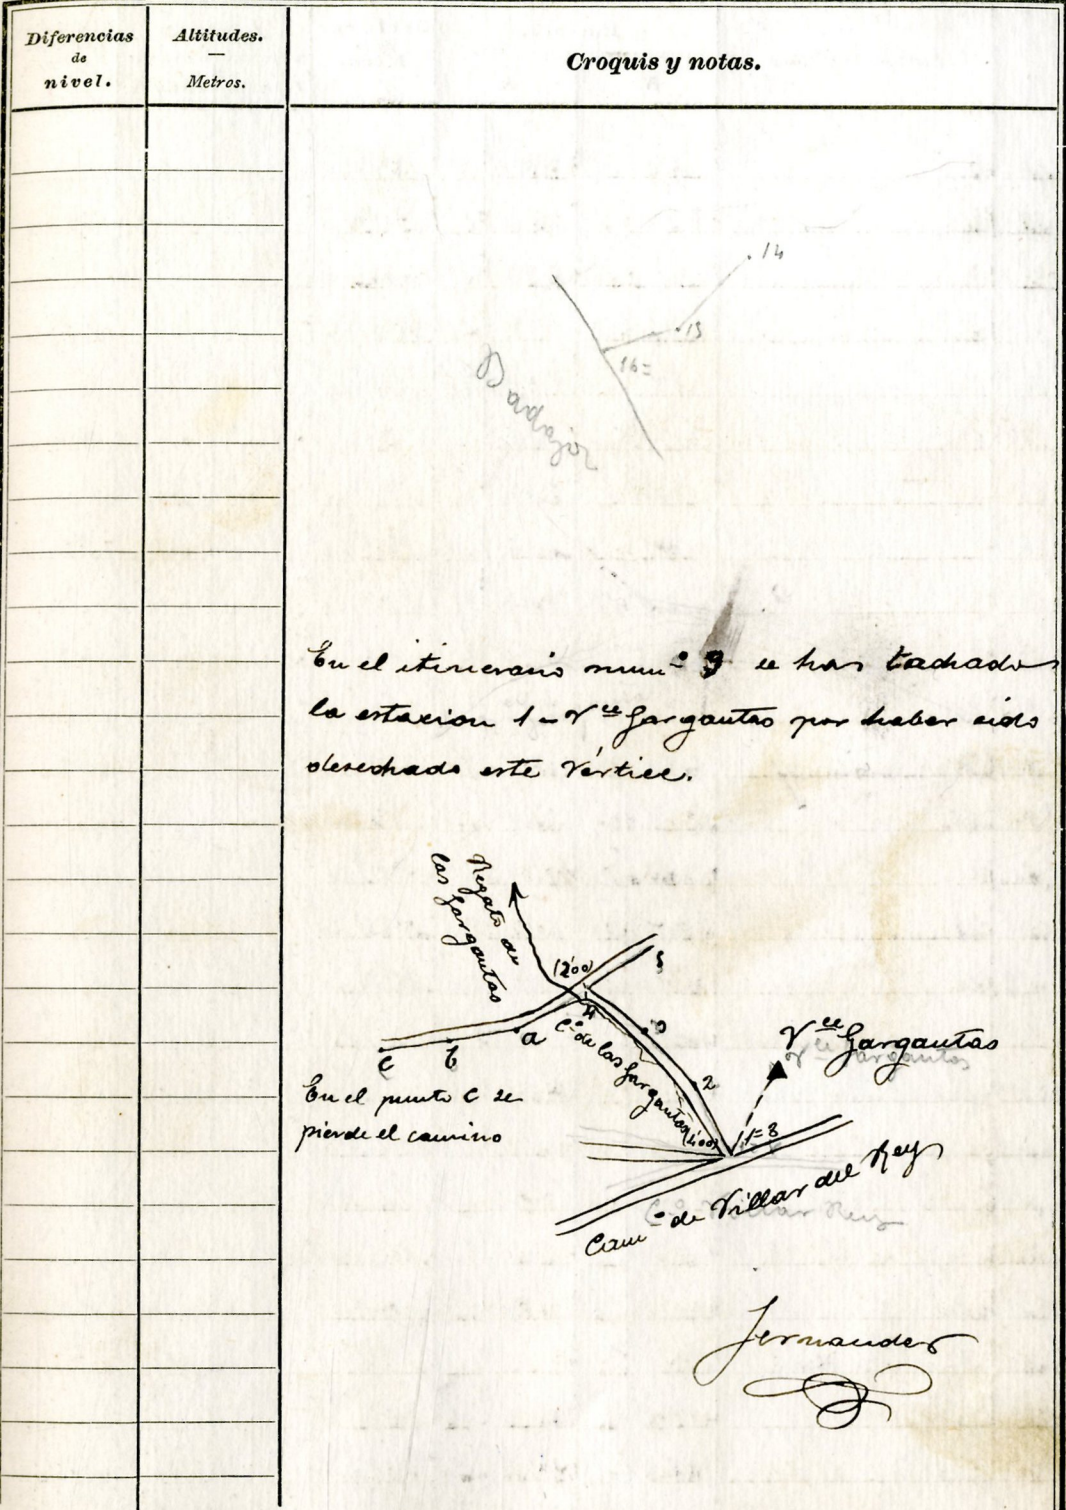 Diferencias
de
nivel.
Altitudes.
Metros.
Croquis y notas.
14
15
16=
Zapapa
En el itinerario numº 9 se han tachado
la estacion 1 = Vce Gargantas por haber sido
desechado este Vértice.
Regato de
las Gargantas
(2'00)
5
4
3
Cº de las Gargantas
2
a
b
c
Vce Gargantas
Vce Gargantas
En el punto C se
pierde el camino
(4'00)
1=8
Camº de Villar del Rey
Cº Villar Rey
Fernandez